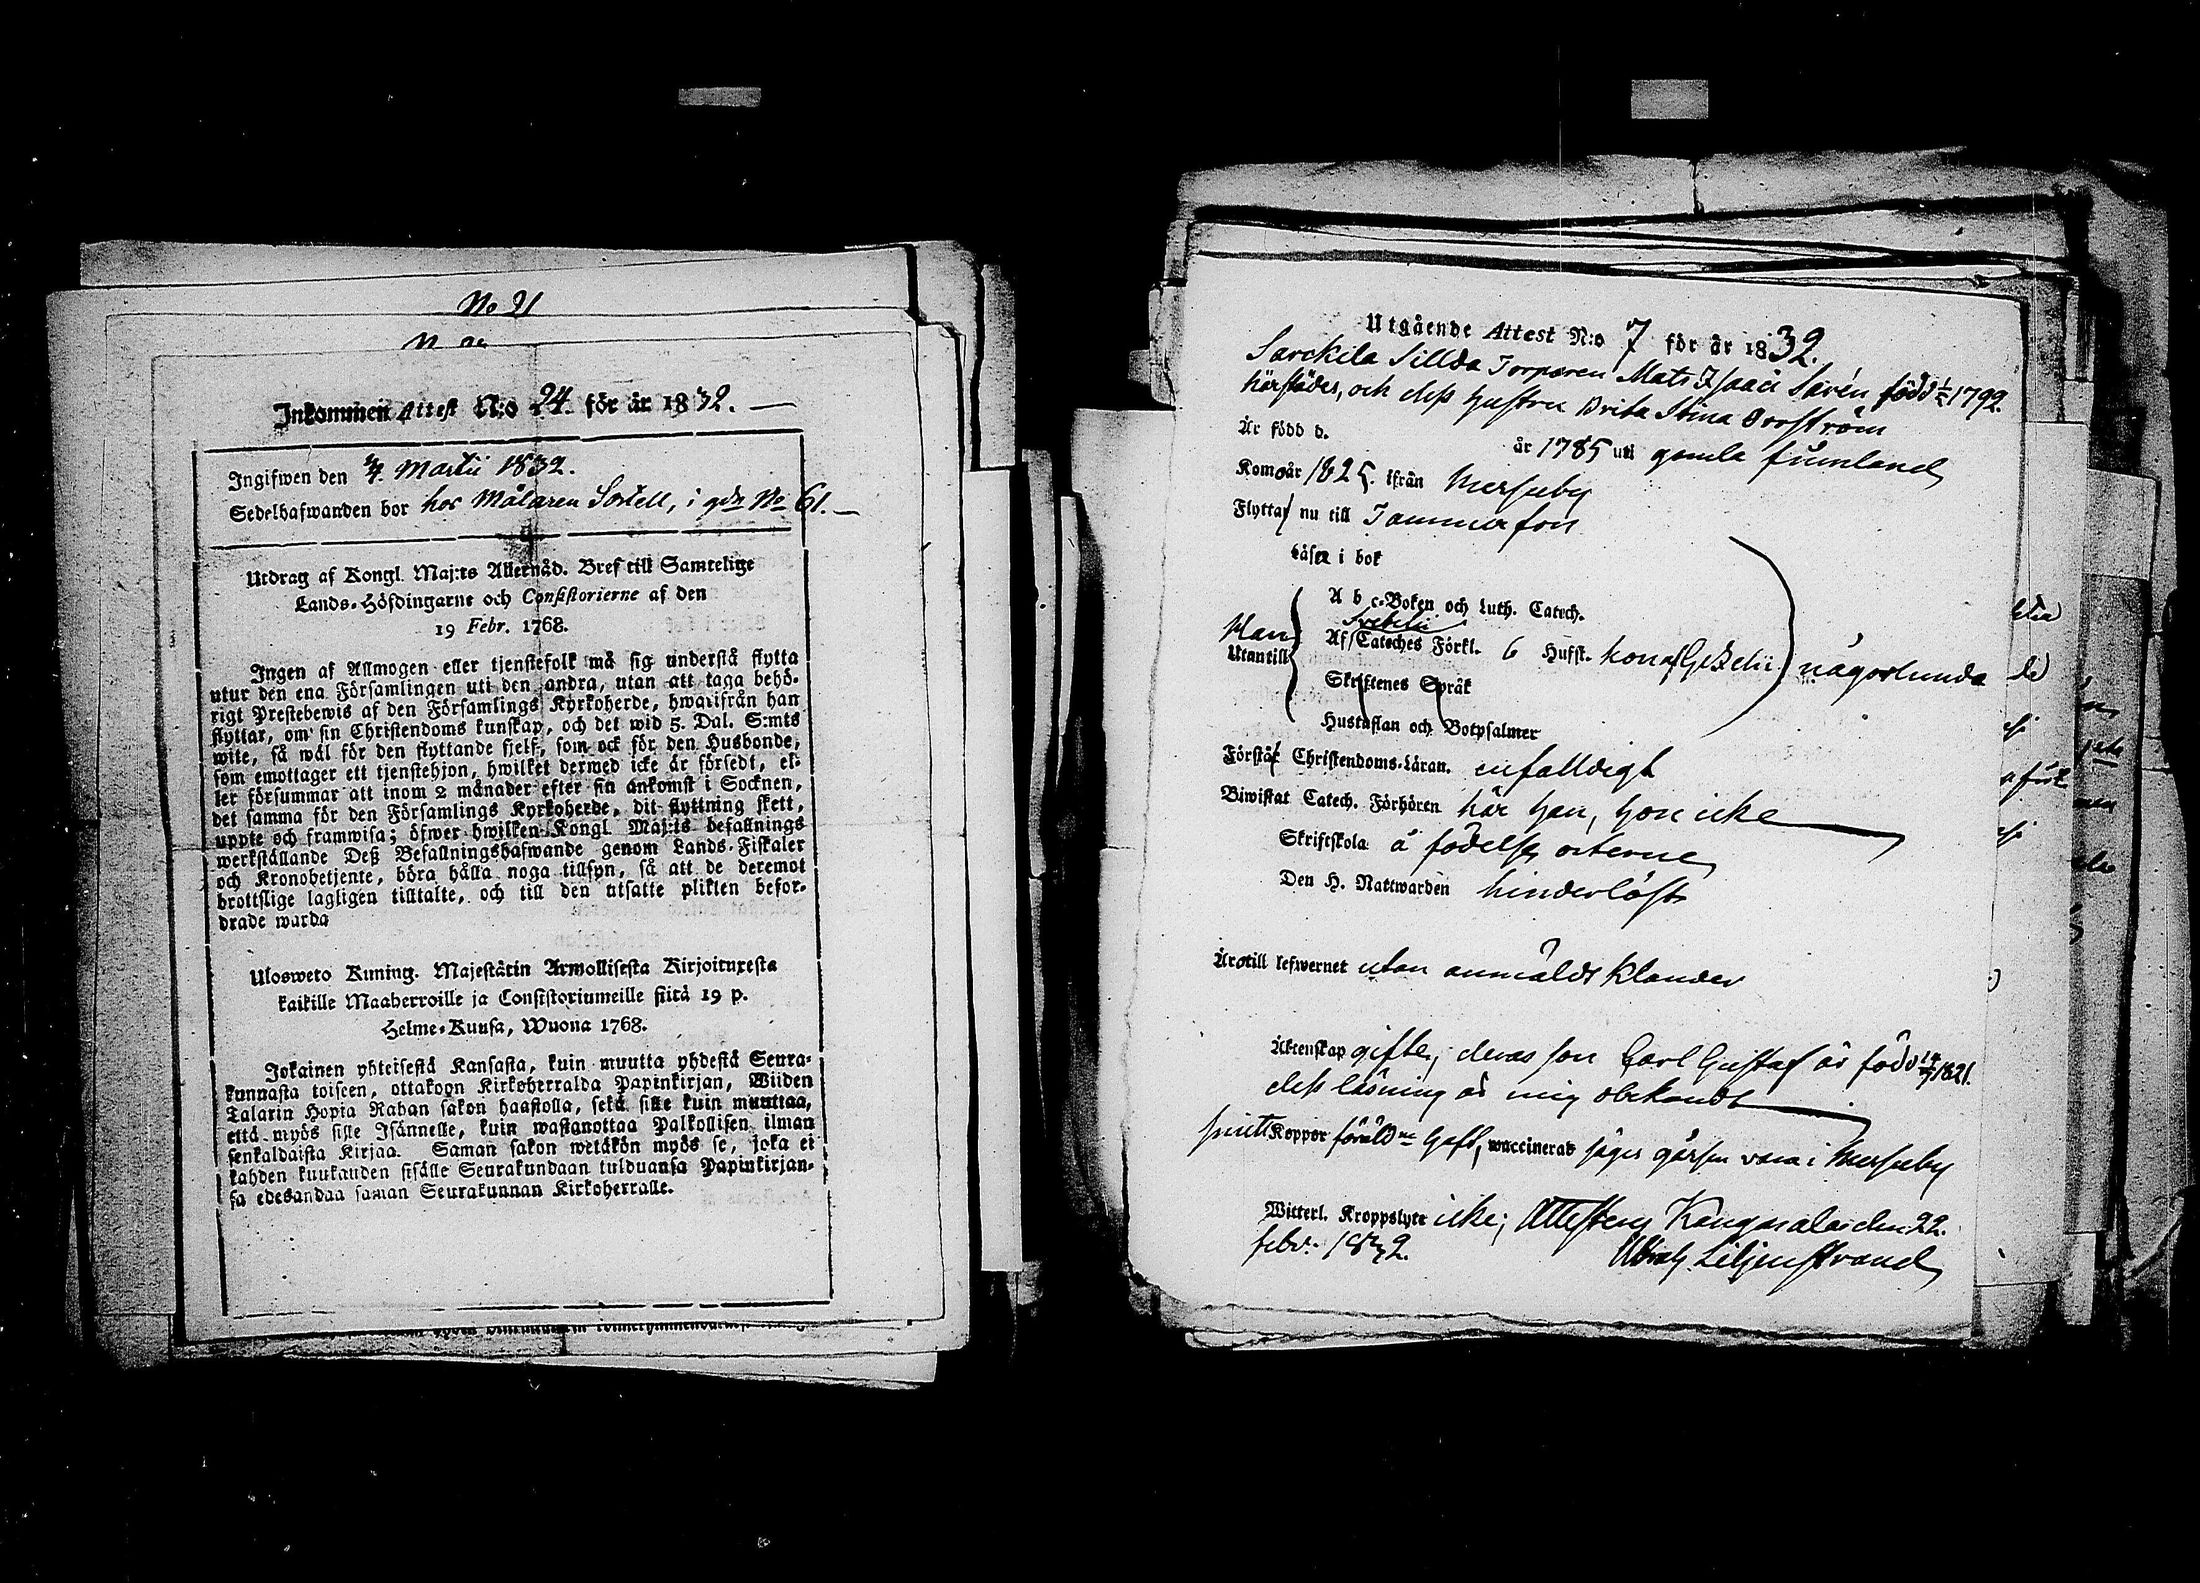 No 21
Inkommen Attest N:o 24. för år 1832. —
Ingifwen den 4/7 Martii 1832.
Sedelhafwanden bor hos Målaren Sortell, i gdn No 61. —
Utdrag af Kongl. Maj:ts Allernåd. Bref till Samtelige
Lands-Höfdingarne och Consistorierne af den
19 Febr. 1768.
Ingen af Allmogen eller tjenstefolk må sig understå flytta
utur den ena Församlingen uti den andra, utan att taga behö-
rigt Prestebewis af den Församlings Kyrkoherde, hwarifrån han
flyttar, om sin Christendoms kunskap, och det wid 5. Dal. S:mts
wite, så wäl för den flyttande sjelf, som ock för den Husbonde,
som emottager ett tjenstehjon, hwilket dermed icke är försedt, el-
ler försummar att inom 2 månader efter sin ankomst i Socknen,
det samma för den Församlings Kyrkoherde, dit flyttning skett,
uppte och framwisa; öfwer hwilken Kongl. Maj:ts befallnings
werkställande Deß Befallningshafwande genom Lands-Fiskaler
och Kronobetjente, böra hålla noga tillsyn, så att de deremot
brottslige lagligen tilltalte, och till den utsatte plikten befor-
drade warda
Ulosweto Kuning. Majestätin Armollisesta Kirjoituxesta
kaikille Maaherroille ja Consistoriumeille siitä 19 p.
Helme-Kuusa, Wuona 1768.
Jokainen yhteisestä Kansasta, kuin muutta yhdestä Seura-
kunnasta toiseen, ottakoon Kirkoherralda Papinkirjan, Wiiden
Talarin Hopia Rahan sakon haastolla, sekä sille kuin muuttaa,
että myös sille Isännelle, kuin wastanottaa Palkollisen ilman
senkaldaista Kirjaa. Saman sakon wetäkön myös se, joka ei
kahden kuukauden sisälle Seurakundaan tulduansa Papinkirjan-
sa edesandaa saman Seurakunnan Kirkoherralle.
Utgående Attest N:o 7 för år 1832.
Sarckila Sillda Torparen Mats Isaacs Sarén född 1/2 1792
härstädes, och dess hustru Brita Stina Orrström
Är född d. år 1785 uti gamla finnland
Kom år 1825. ifrån Messuby
Flyttar nu till Tammerfors
Läser i bok
A b c-Boken och Luth. Catech.
Svebelii
Han
Utantill Af Cateches Förkl. 6 Hufst. hon af Gezelii någorlunda
Skriftenes Språk
Hustaflan och Botpsalmer
Förstår Christendoms-Läran. enfalldigt
Biwistat Catech. Förhören här han, hon icke
Skriftskola å födelse orterne
Den H. Nattwarden hinderlöst
Äro till lefwernet utan anmäldt klander
Äktenskap gifte; deras son Carl Gustaf är född 14/7 1821.
dess läsning är mig obekandt
Koppor föräldne haft, waccinerad säges gåssen vara i Messuby
Witterl. Kroppslyte icke; Attesterar Kangasala den 22.
febr. 1832.
Abrah. Liljenstrand